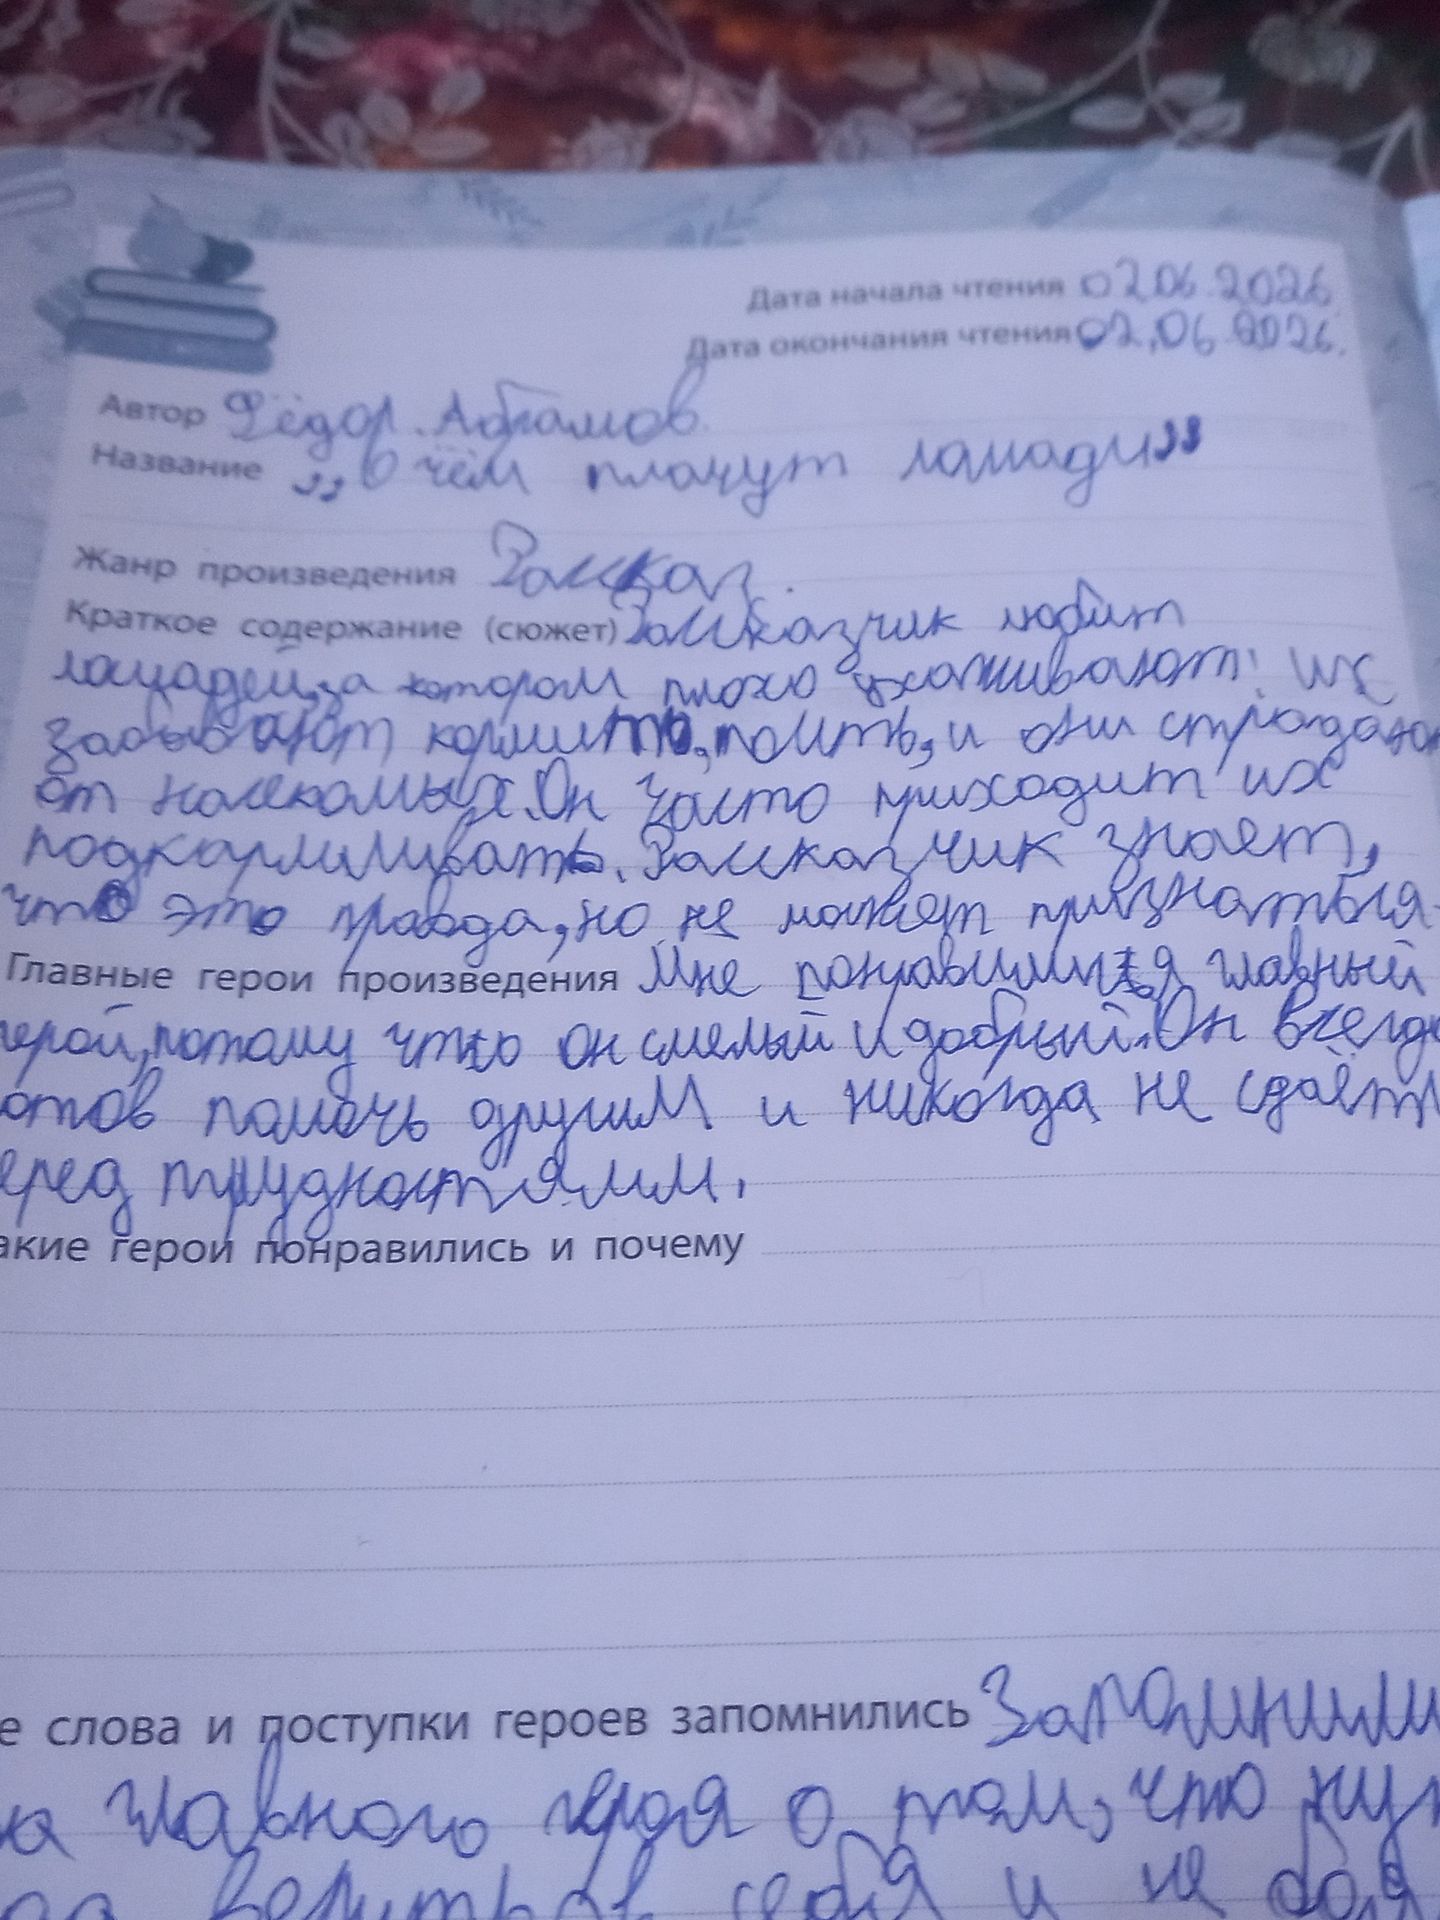 Дата начала чтения 02.06.2026
Дата окончания чтения 02.06.2026.
Автор Фёдор. Абрамов.
Название „О чём плачут лошади"
Жанр произведения Рассказ.
Краткое содержание (сюжет) Рассказчик любит
лошадей, за котором плохо ухаживают: их
забывают кормить, поить, и они страдают
от насекомых. Он часто приходит их
подкармливать. Рассказчик знает,
что это правда, но не может признаться.
Главные герои произведения Мне понравился главный
герой, потому что он смелый и добрый. Он всегда
отов помочь другим и никогда не сдаёт
еред трудностями.
акие герои понравились и почему
е слова и поступки героев запомнились Запомнили
главного героя о том, что
верить в себя и не боя